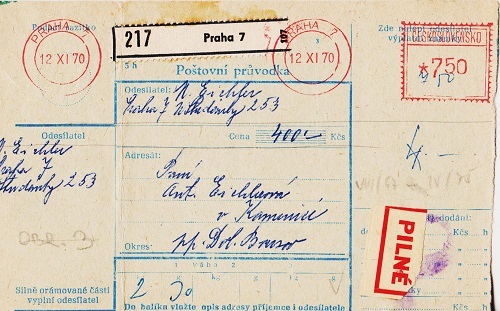 Podací razítko
PRAHA 7
12 XI 70
217 Praha 7
PRAHA 7
12 XI 70
Zde nalepí odesílatel
výplatní známky
ČESKOSLOVENSKO
*750
750
5 h
Poštovní průvodka
Odesílatel: N. Eichler
Praha 7 U Studánky 253
Cena 400,- Kčs
Odesílatel
N. Eichler
Praha 7
Studánky 253
Adresát:
Paní
Ant. Eichlerová
v Kamenici
Okres: pp. Dol. Bousov
PILNÉ
dodání:
h
Kčs
Kčs
Váha
2 30
Silně orámované části
vyplní odesílatel
Do balíku vložte opis adresy příjemce i odesílatele